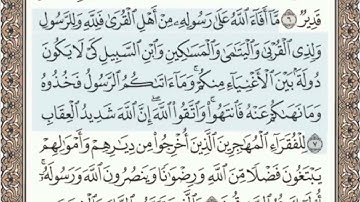 قَدِيرٌ ۝٦ مَّآ أَفَآءَ ٱللَّهُ عَلَىٰ رَسُولِهِۦ مِنْ أَهْلِ ٱلْقُرَىٰ فَلِلَّهِ وَلِلرَّسُولِ
وَلِذِى ٱلْقُرْبَىٰ وَٱلْيَتَٰمَىٰ وَٱلْمَسَٰكِينِ وَٱبْنِ ٱلسَّبِيلِ كَىْ لَا يَكُونَ
دُولَةًۢ بَيْنَ ٱلْأَغْنِيَآءِ مِنكُمْ ۚ وَمَآ ءَاتَىٰكُمُ ٱلرَّسُولُ فَخُذُوهُ
وَمَا نَهَىٰكُمْ عَنْهُ فَٱنتَهُوا۟ ۚ وَٱتَّقُوا۟ ٱللَّهَ ۖ إِنَّ ٱللَّهَ شَدِيدُ ٱلْعِقَابِ
۝٧ لِلْفُقَرَآءِ ٱلْمُهَٰجِرِينَ ٱلَّذِينَ أُخْرِجُوا۟ مِن دِيَٰرِهِمْ وَأَمْوَٰلِهِمْ
يَبْتَغُونَ فَضْلًا مِّنَ ٱللَّهِ وَرِضْوَٰنًا وَيَنصُرُونَ ٱللَّهَ وَرَسُولَهُۥٓ ۚ